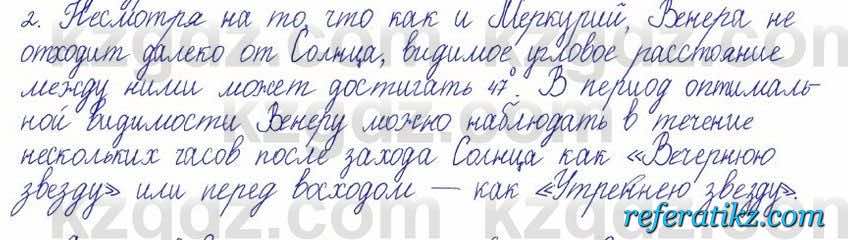 2. Несмотря на то, что как и Меркурий, Венера не
отходит далеко от Солнца, видимое угловое расстояние
между ними может достигать 47°. В период оптималь-
ной видимости Венеру можно наблюдать в течение
нескольких часов после захода Солнца как «Вечернюю
звезду» или перед восходом — как «Утреннею звезду».
referatikz.com